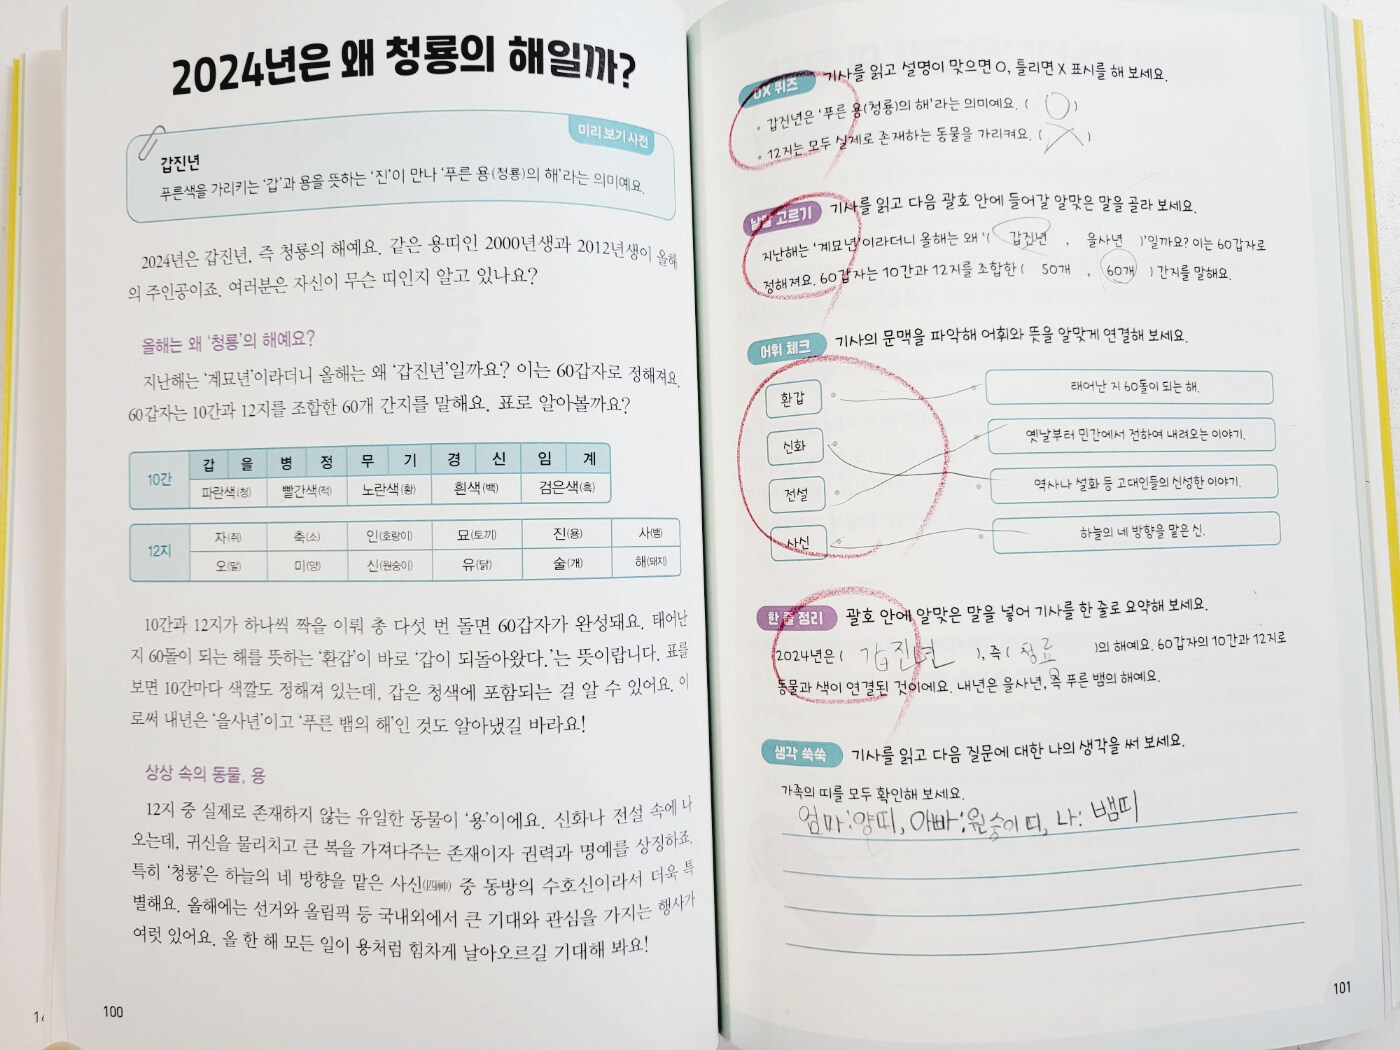 2024년은 왜 청룡의 해일까?
미리 보기 사전
갑진년
푸른색을 가리키는 '갑'과 용을 뜻하는 '진'이 만나 '푸른 용(청룡)의 해'라는 의미예요.
2024년은 갑진년, 즉 청룡의 해예요. 같은 용띠인 2000년생과 2012년생이 올해
의 주인공이죠. 여러분은 자신이 무슨 띠인지 알고 있나요?
올해는 왜 '청룡'의 해예요?
지난해는 '계묘년'이라더니 올해는 왜 '갑진년'일까요? 이는 60갑자로 정해져요.
60갑자는 10간과 12지를 조합한 60개 간지를 말해요. 표로 알아볼까요?
10간 갑 을 병 정 무 기 경 신 임 계
파란색(청) 빨간색(적) 노란색(황) 흰색(백) 검은색(흑)
12지 자(쥐) 축(소) 인(호랑이) 묘(토끼) 진(용) 사(뱀)
오(말) 미(양) 신(원숭이) 유(닭) 술(개) 해(돼지)
10간과 12지가 하나씩 짝을 이뤄 총 다섯 번 돌면 60갑자가 완성돼요. 태어난
지 60돌이 되는 해를 뜻하는 '환갑'이 바로 '갑이 되돌아왔다.'는 뜻이랍니다. 표를
보면 10간마다 색깔도 정해져 있는데, 갑은 청색에 포함되는 걸 알 수 있어요. 이
로써 내년은 '을사년'이고 '푸른 뱀의 해'인 것도 알아냈길 바라요!
상상 속의 동물, 용
12지 중 실제로 존재하지 않는 유일한 동물이 '용'이에요. 신화나 전설 속에 나
오는데, 귀신을 물리치고 큰 복을 가져다주는 존재이자 권력과 명예를 상징하죠.
특히 '청룡'은 하늘의 네 방향을 맡은 사신(四神) 중 동방의 수호신이라서 더욱 특
별해요. 올해에는 선거와 올림픽 등 국내외에서 큰 기대와 관심을 가지는 행사가
여럿 있어요. 올 한 해 모든 일이 용처럼 힘차게 날아오르길 기대해 봐요!
100
OX 퀴즈 기사를 읽고 설명이 맞으면 O, 틀리면 X 표시를 해 보세요.
• 갑진년은 '푸른 용(청룡)의 해'라는 의미예요. ( O )
• 12지는 모두 실제로 존재하는 동물을 가리켜요. ( X )
낱말 고르기 기사를 읽고 다음 괄호 안에 들어갈 알맞은 말을 골라 보세요.
지난해는 '계묘년'이라더니 올해는 왜 '( 갑진년 , 을사년 )'일까요? 이는 60갑자로
정해져요. 60갑자는 10간과 12지를 조합한 ( 50개 , 60개 ) 간지를 말해요.
어휘 체크 기사의 문맥을 파악해 어휘와 뜻을 알맞게 연결해 보세요.
환갑 태어난 지 60돌이 되는 해.
신화 옛날부터 민간에서 전하여 내려오는 이야기.
전설 역사나 설화 등 고대인들의 신성한 이야기.
사신 하늘의 네 방향을 맡은 신.
한 줄 정리 괄호 안에 알맞은 말을 넣어 기사를 한 줄로 요약해 보세요.
2024년은 ( 갑진년 ), 즉 ( 청룡 )의 해예요. 60갑자의 10간과 12지로
동물과 색이 연결된 것이에요. 내년은 을사년, 즉 푸른 뱀의 해예요.
생각 쑥쑥 기사를 읽고 다음 질문에 대한 나의 생각을 써 보세요.
가족의 띠를 모두 확인해 보세요.
엄마:양띠, 아빠:원숭이 띠, 나: 뱀띠
101